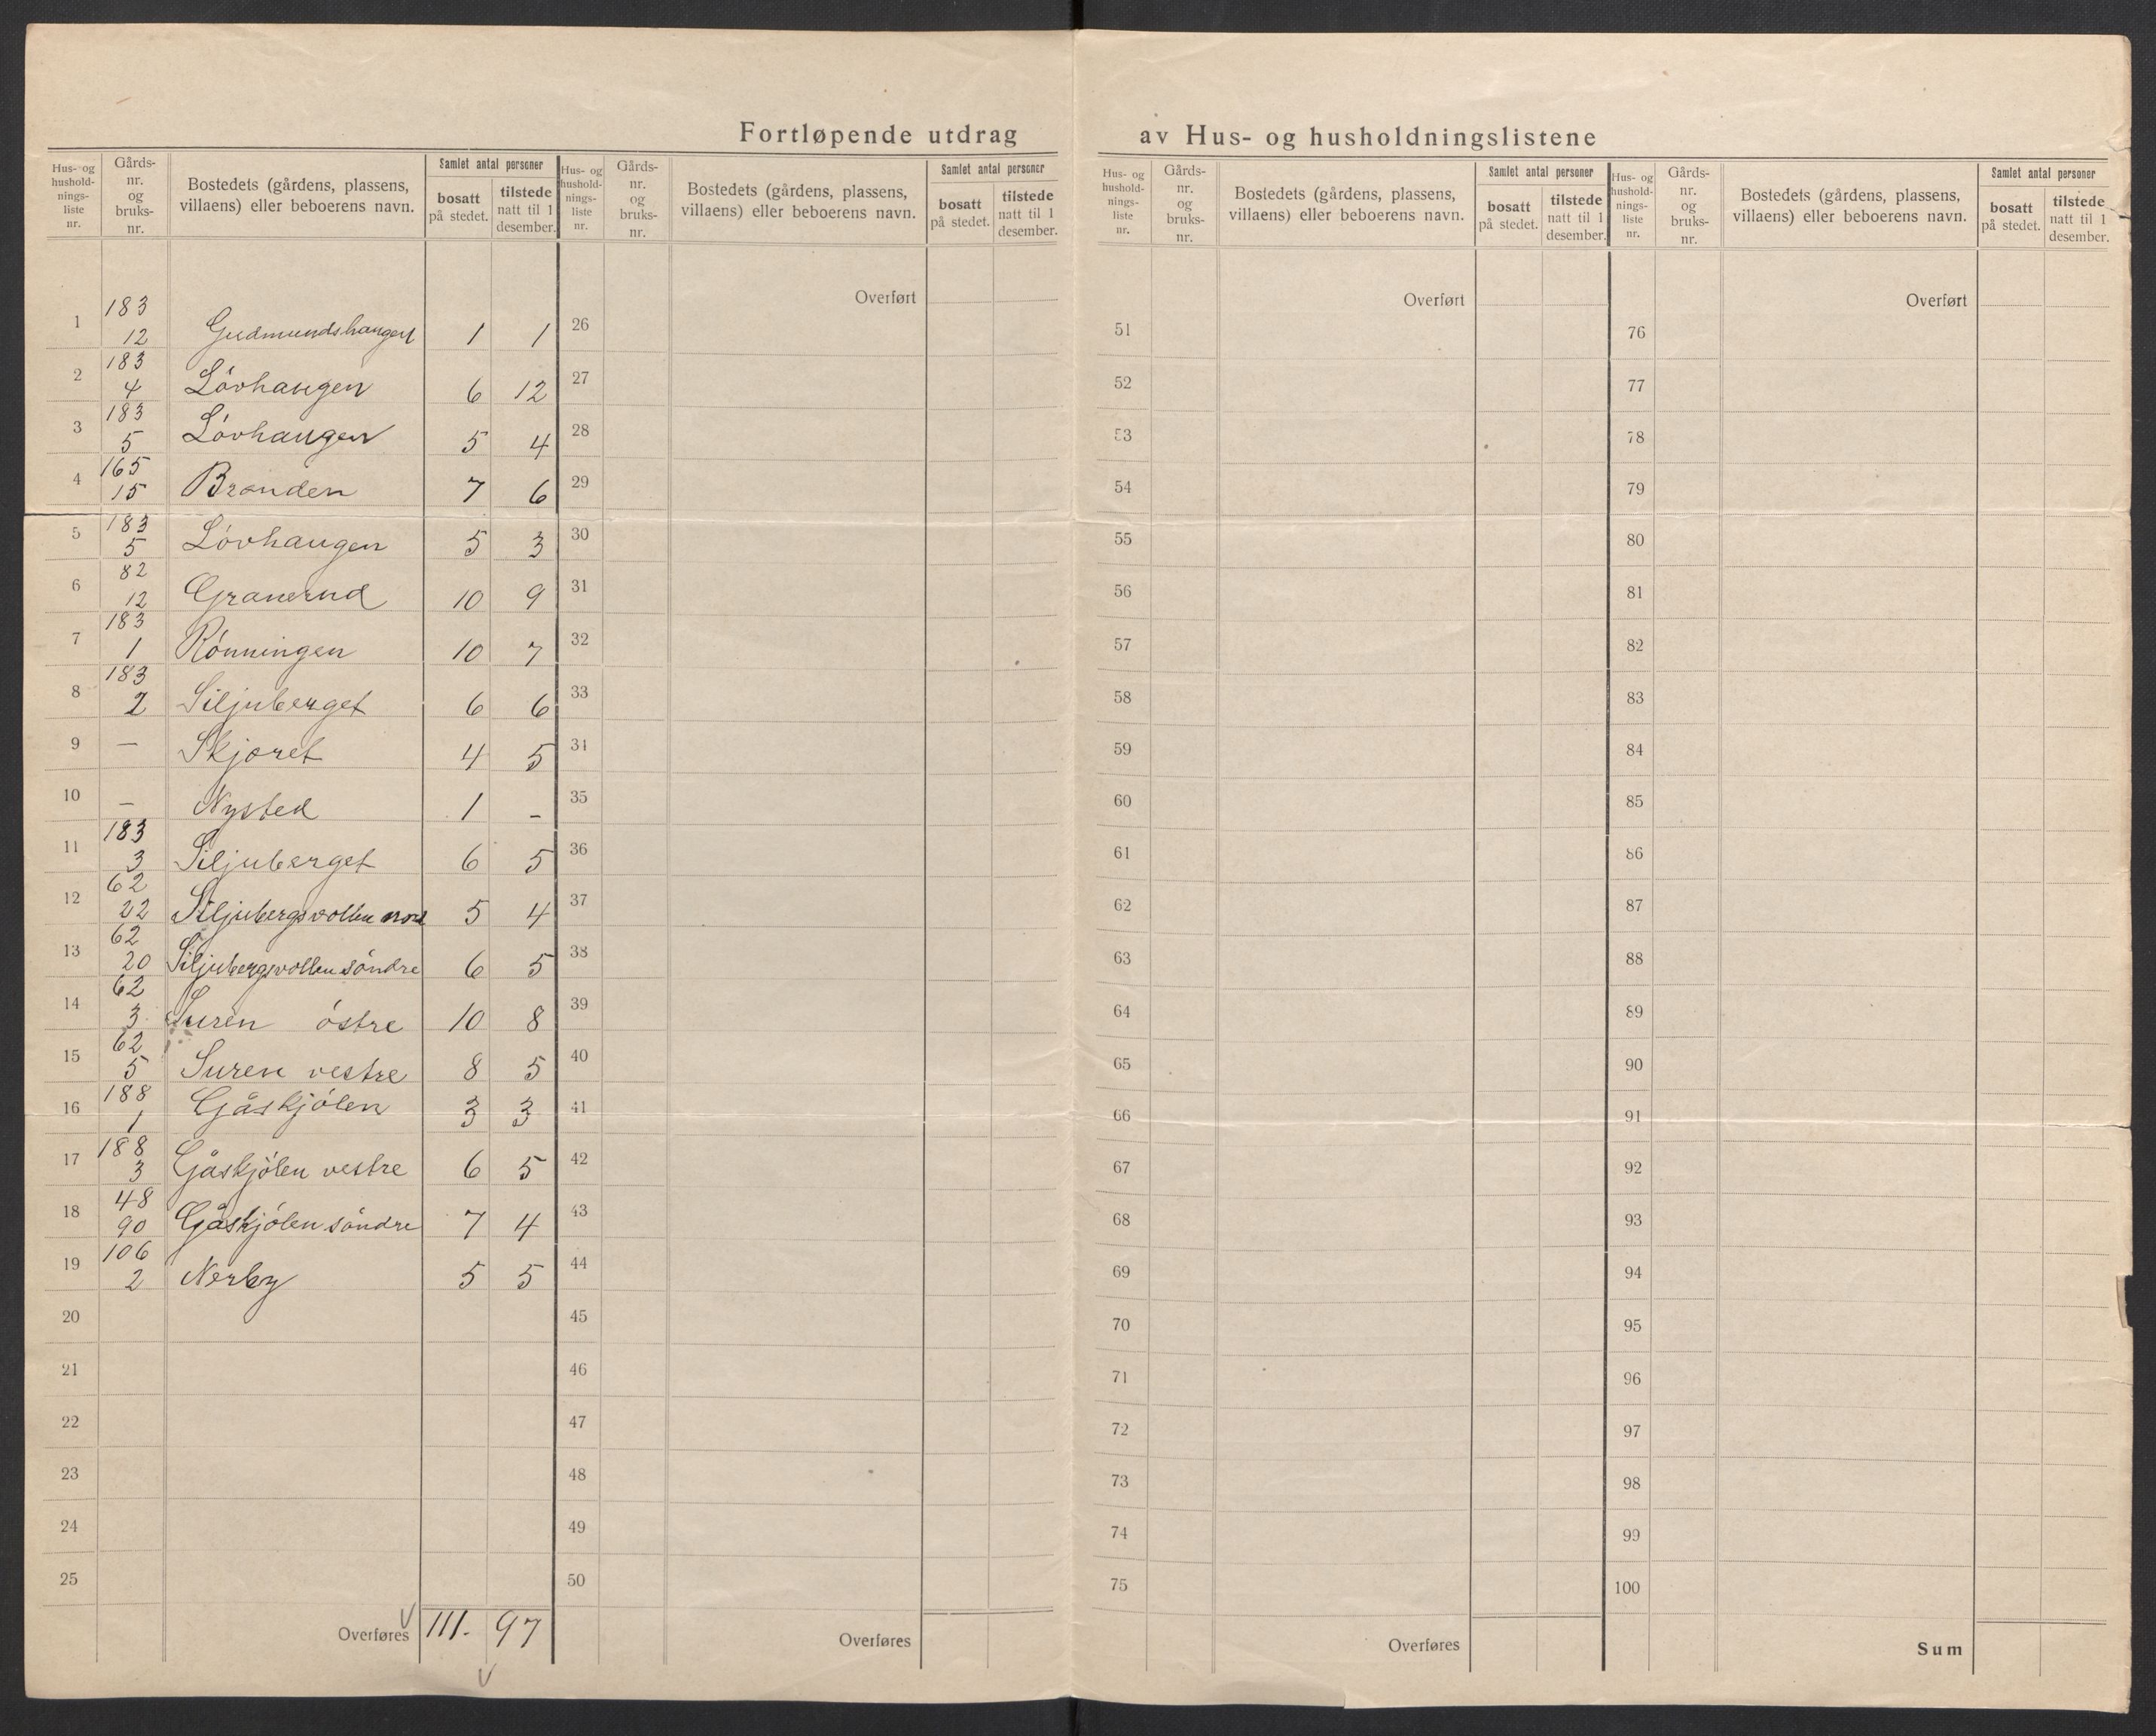 Fortløpende utdrag av Hus- og husholdningslistene
Hus- og hushold-nings-liste nr. | Gårds-nr. og bruks-nr. | Bostedets (gårdens, plassens, villaens) eller beboerens navn. | Samlet antal personer | bosatt på stedet. | tilstede natt til 1 desember.
Hus- og hushold-nings-liste nr. | Gårds-nr. og bruks-nr. | Bostedets (gårdens, plassens, villaens) eller beboerens navn. | Samlet antal personer | bosatt på stedet. | tilstede natt til 1 desember.
Hus- og hushold-nings-liste nr. | Gårds-nr. og bruks-nr. | Bostedets (gårdens, plassens, villaens) eller beboerens navn. | Samlet antal personer | bosatt på stedet. | tilstede natt til 1 desember.
Hus- og hushold-nings-liste nr. | Gårds-nr. og bruks-nr. | Bostedets (gårdens, plassens, villaens) eller beboerens navn. | Samlet antal personer | bosatt på stedet. | tilstede natt til 1 desember.
1 183 12 Gudmundshaugen 1 1
2 183 4 Lövhaugen 6 12
3 183 5 Lövhaugen 5 4
4 165 15 Branden 7 6
5 183 5 Lövhaugen 5 3
6 82 12 Granerud 10 9
7 183 1 Rönningen 10 7
8 183 2 Siljuberget 6 6
9 — Skjæret 4 5
10 — Nysted 1 -
11 183 3 Siljuberget 6 5
12 62 22 Siljubergsvollen nord 5 4
13 62 20 Siljubergsvollen söndre 6 5
14 62 3 Suren östre 10 8
15 62 5 Suren vestre 8 5
16 188 1 Gåskjölen 3 3
17 188 3 Gåskjölen vestre 6 5
18 48 90 Gåskjölen söndre 7 4
19 106 2 Nerby 5 5
20
21
22
23
24
25
Overføres 111. 97
Overført
26
27
28
29
30
31
32
33
34
35
36
37
38
39
40
41
42
43
44
45
46
47
48
49
50
Overføres
Overført
51
52
53
54
55
56
57
58
59
60
61
62
63
64
65
66
67
68
69
70
71
72
73
74
75
Overføres
Overført
76
77
78
79
80
81
82
83
84
85
86
87
88
89
90
91
92
93
94
95
96
97
98
99
100
Sum